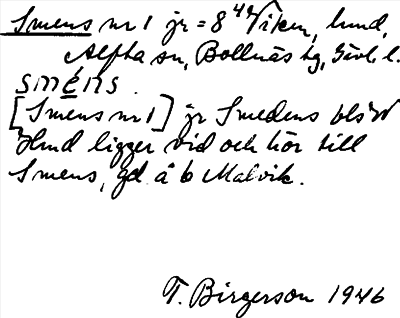 Smens nr 1 jr = 8⁴⁸ Viken, hmd,
Alfta sn, Bollnäs tg, Gävl. l.
smens.
[Smens nr 1] jr Smedens
Hmd ligger vid och hör till
Smens, gd å b Malvik.
T. Birgerson 1946